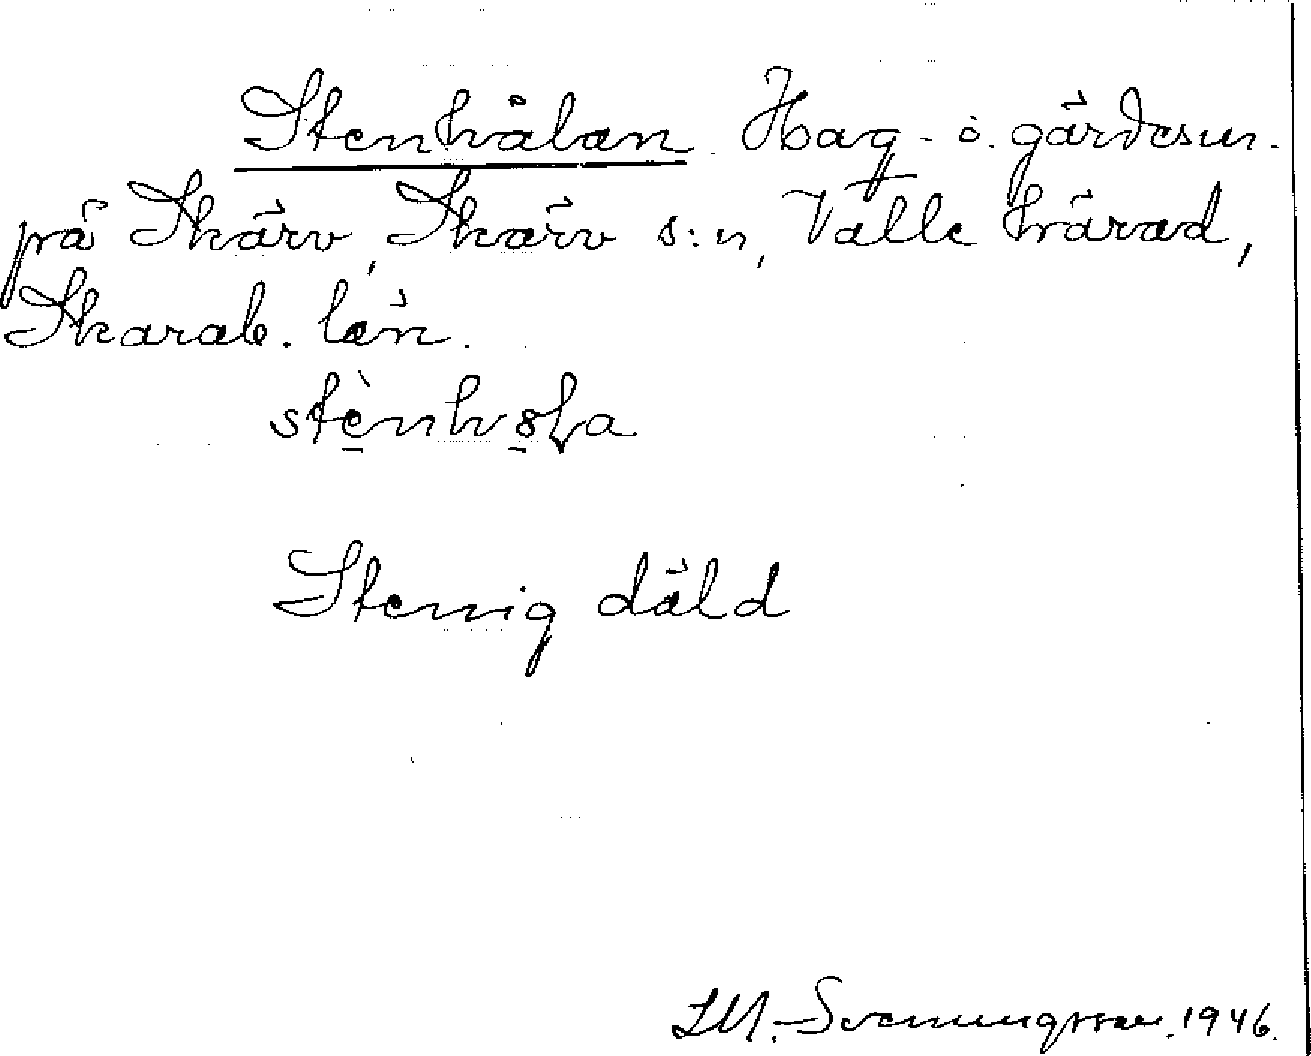 Stenhålan Hag- o. gärdesm.
på Skärv, Skärv s:n, Valle härad,
Skarab. län.
Stenig däld
Svenungsson 1946.